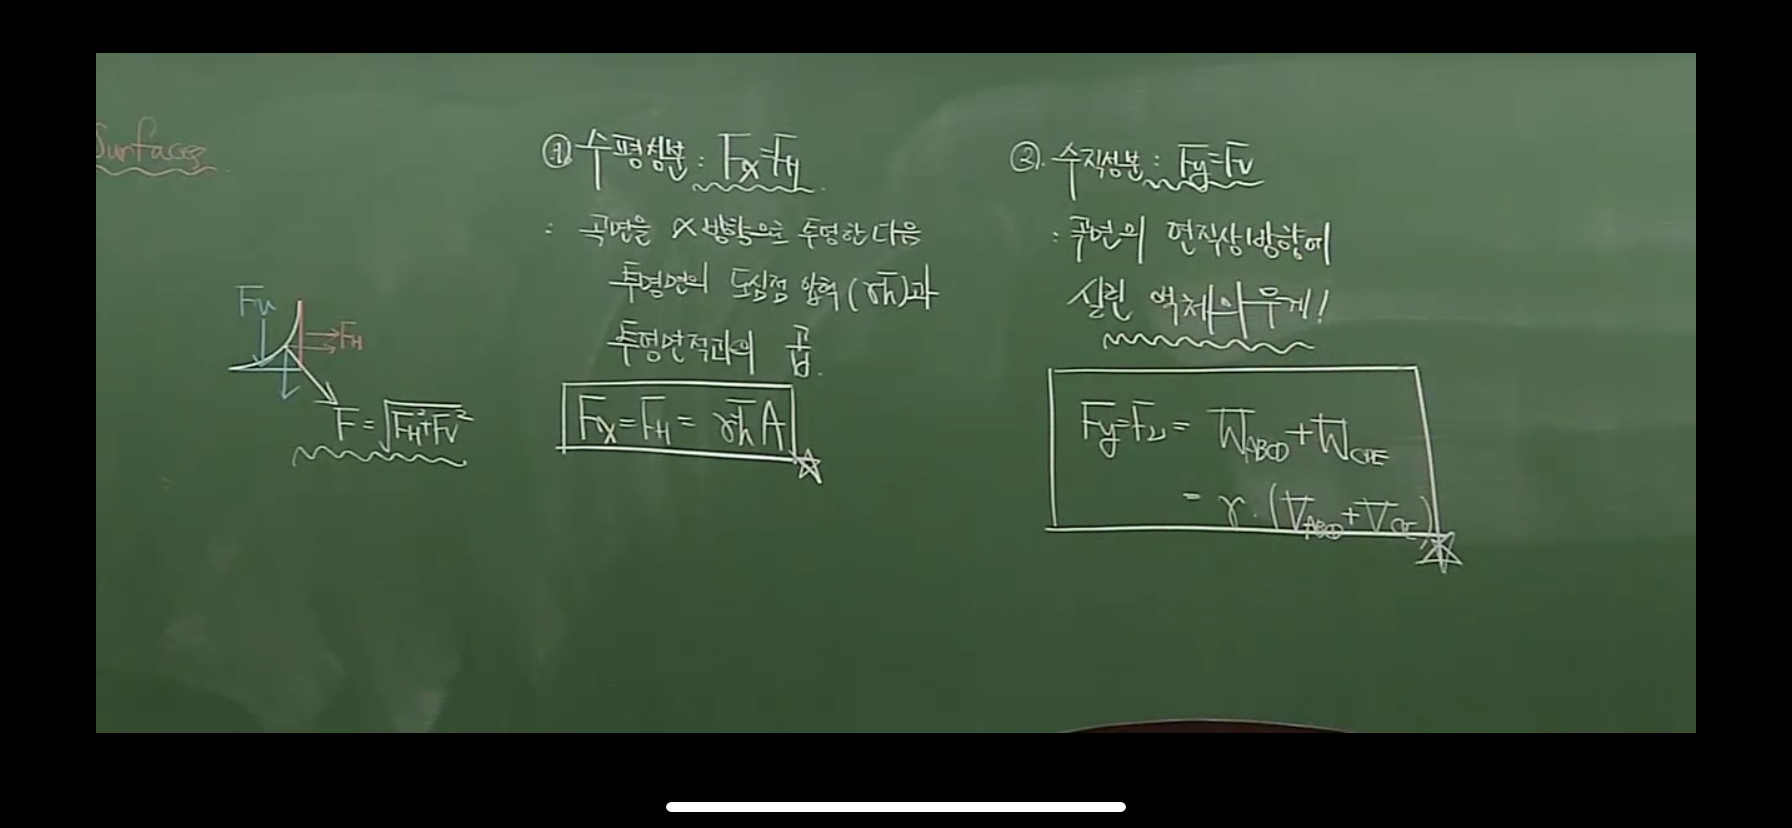 Surfaces
Fv
FH
F = √FH²+Fv²
①. 수평성분 : Fx=FH
: 곡면을 x방향으로 투영한 다음
투영면의 도심점 압력(γh̄)과
투영면적과의 곱.
Fx=FH= γh̄A
②. 수직성분 : Fy=Fv
: 곡면의 연직상방향에
실린 액체의 무게!
Fy=Fv= WABCD+WCDE
= γ·(VABCD+VCDE)